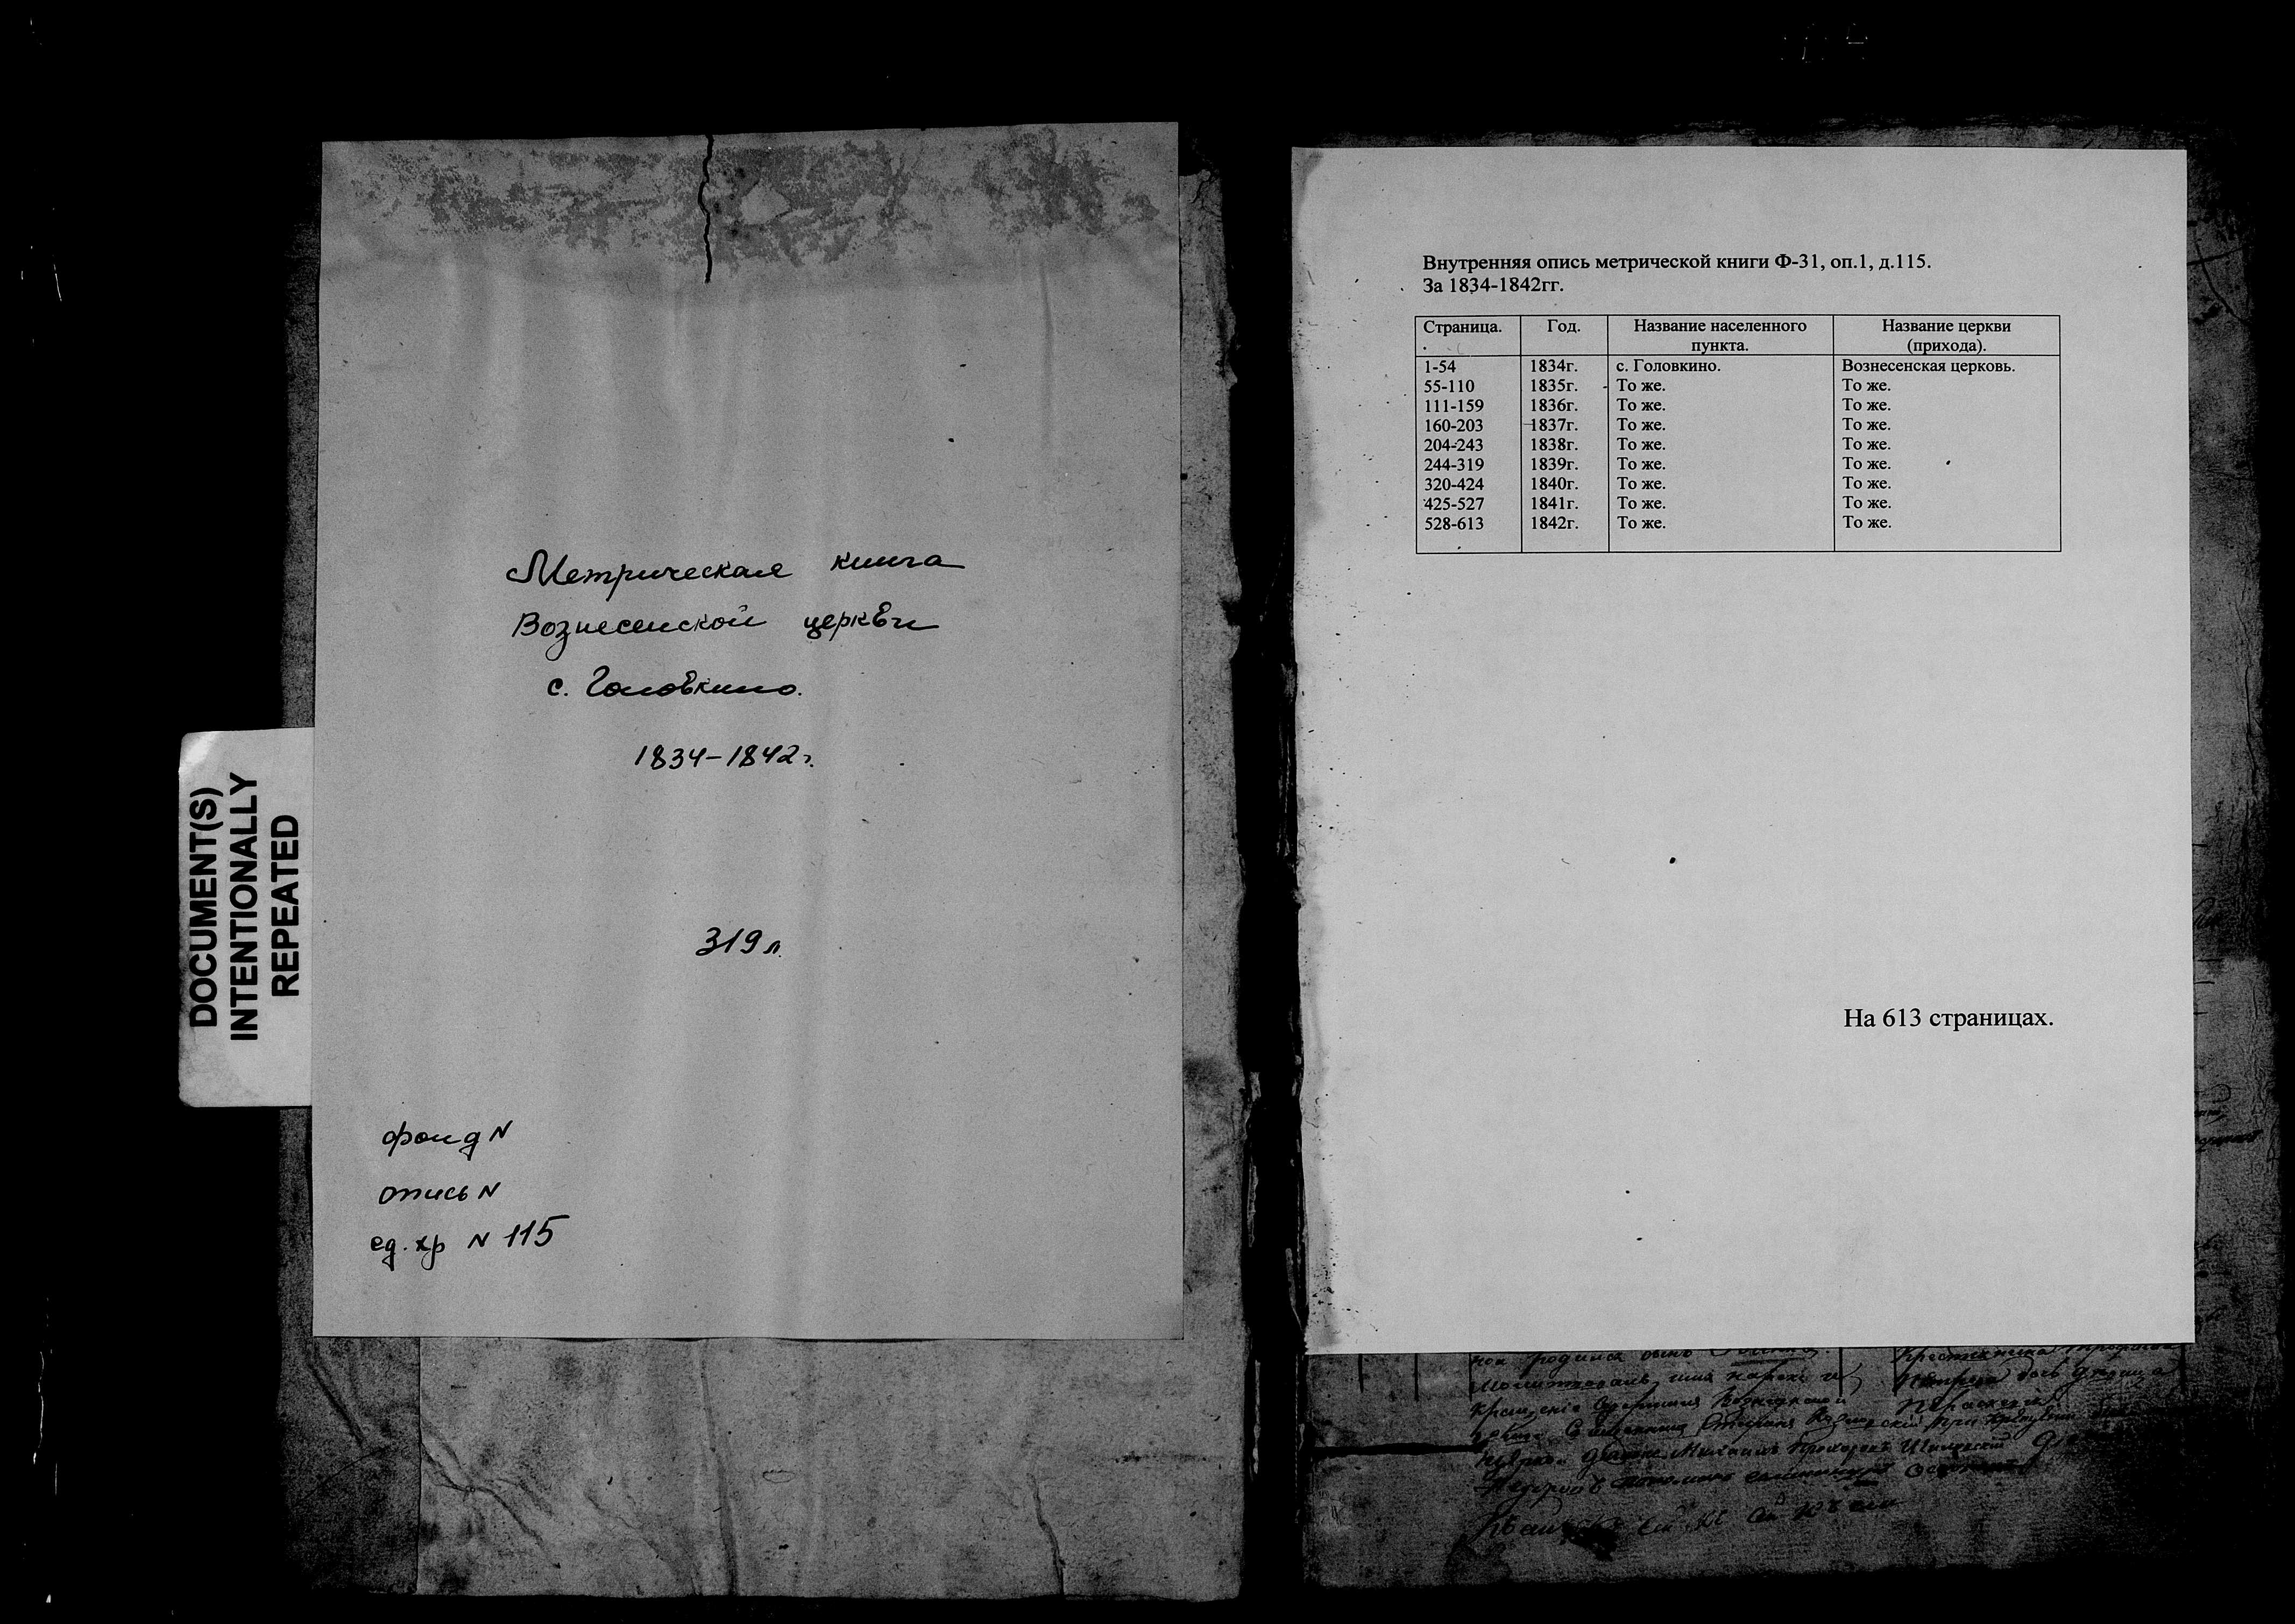 DOCUMENT(S)
INTENTIONALLY
REPEATED
Метрическая книга
Вознесенской церкви
с. Головкино.
1834-1842г.
319 л.
фонд N
опись N
ед. хр N 115
Внутренняя опись метрической книги Ф-31, оп.1, д.115.
За 1834-1842гг.
Страница. Год. Название населенного пункта. Название церкви (прихода).
1-54 1834г. с. Головкино. Вознесенская церковь.
55-110 1835г. То же. То же.
111-159 1836г. То же. То же.
160-203 1837г. То же. То же.
204-243 1838г. То же. То же.
244-319 1839г. То же. То же.
320-424 1840г. То же. То же.
425-527 1841г. То же. То же.
528-613 1842г. То же. То же.
На 613 страницах.